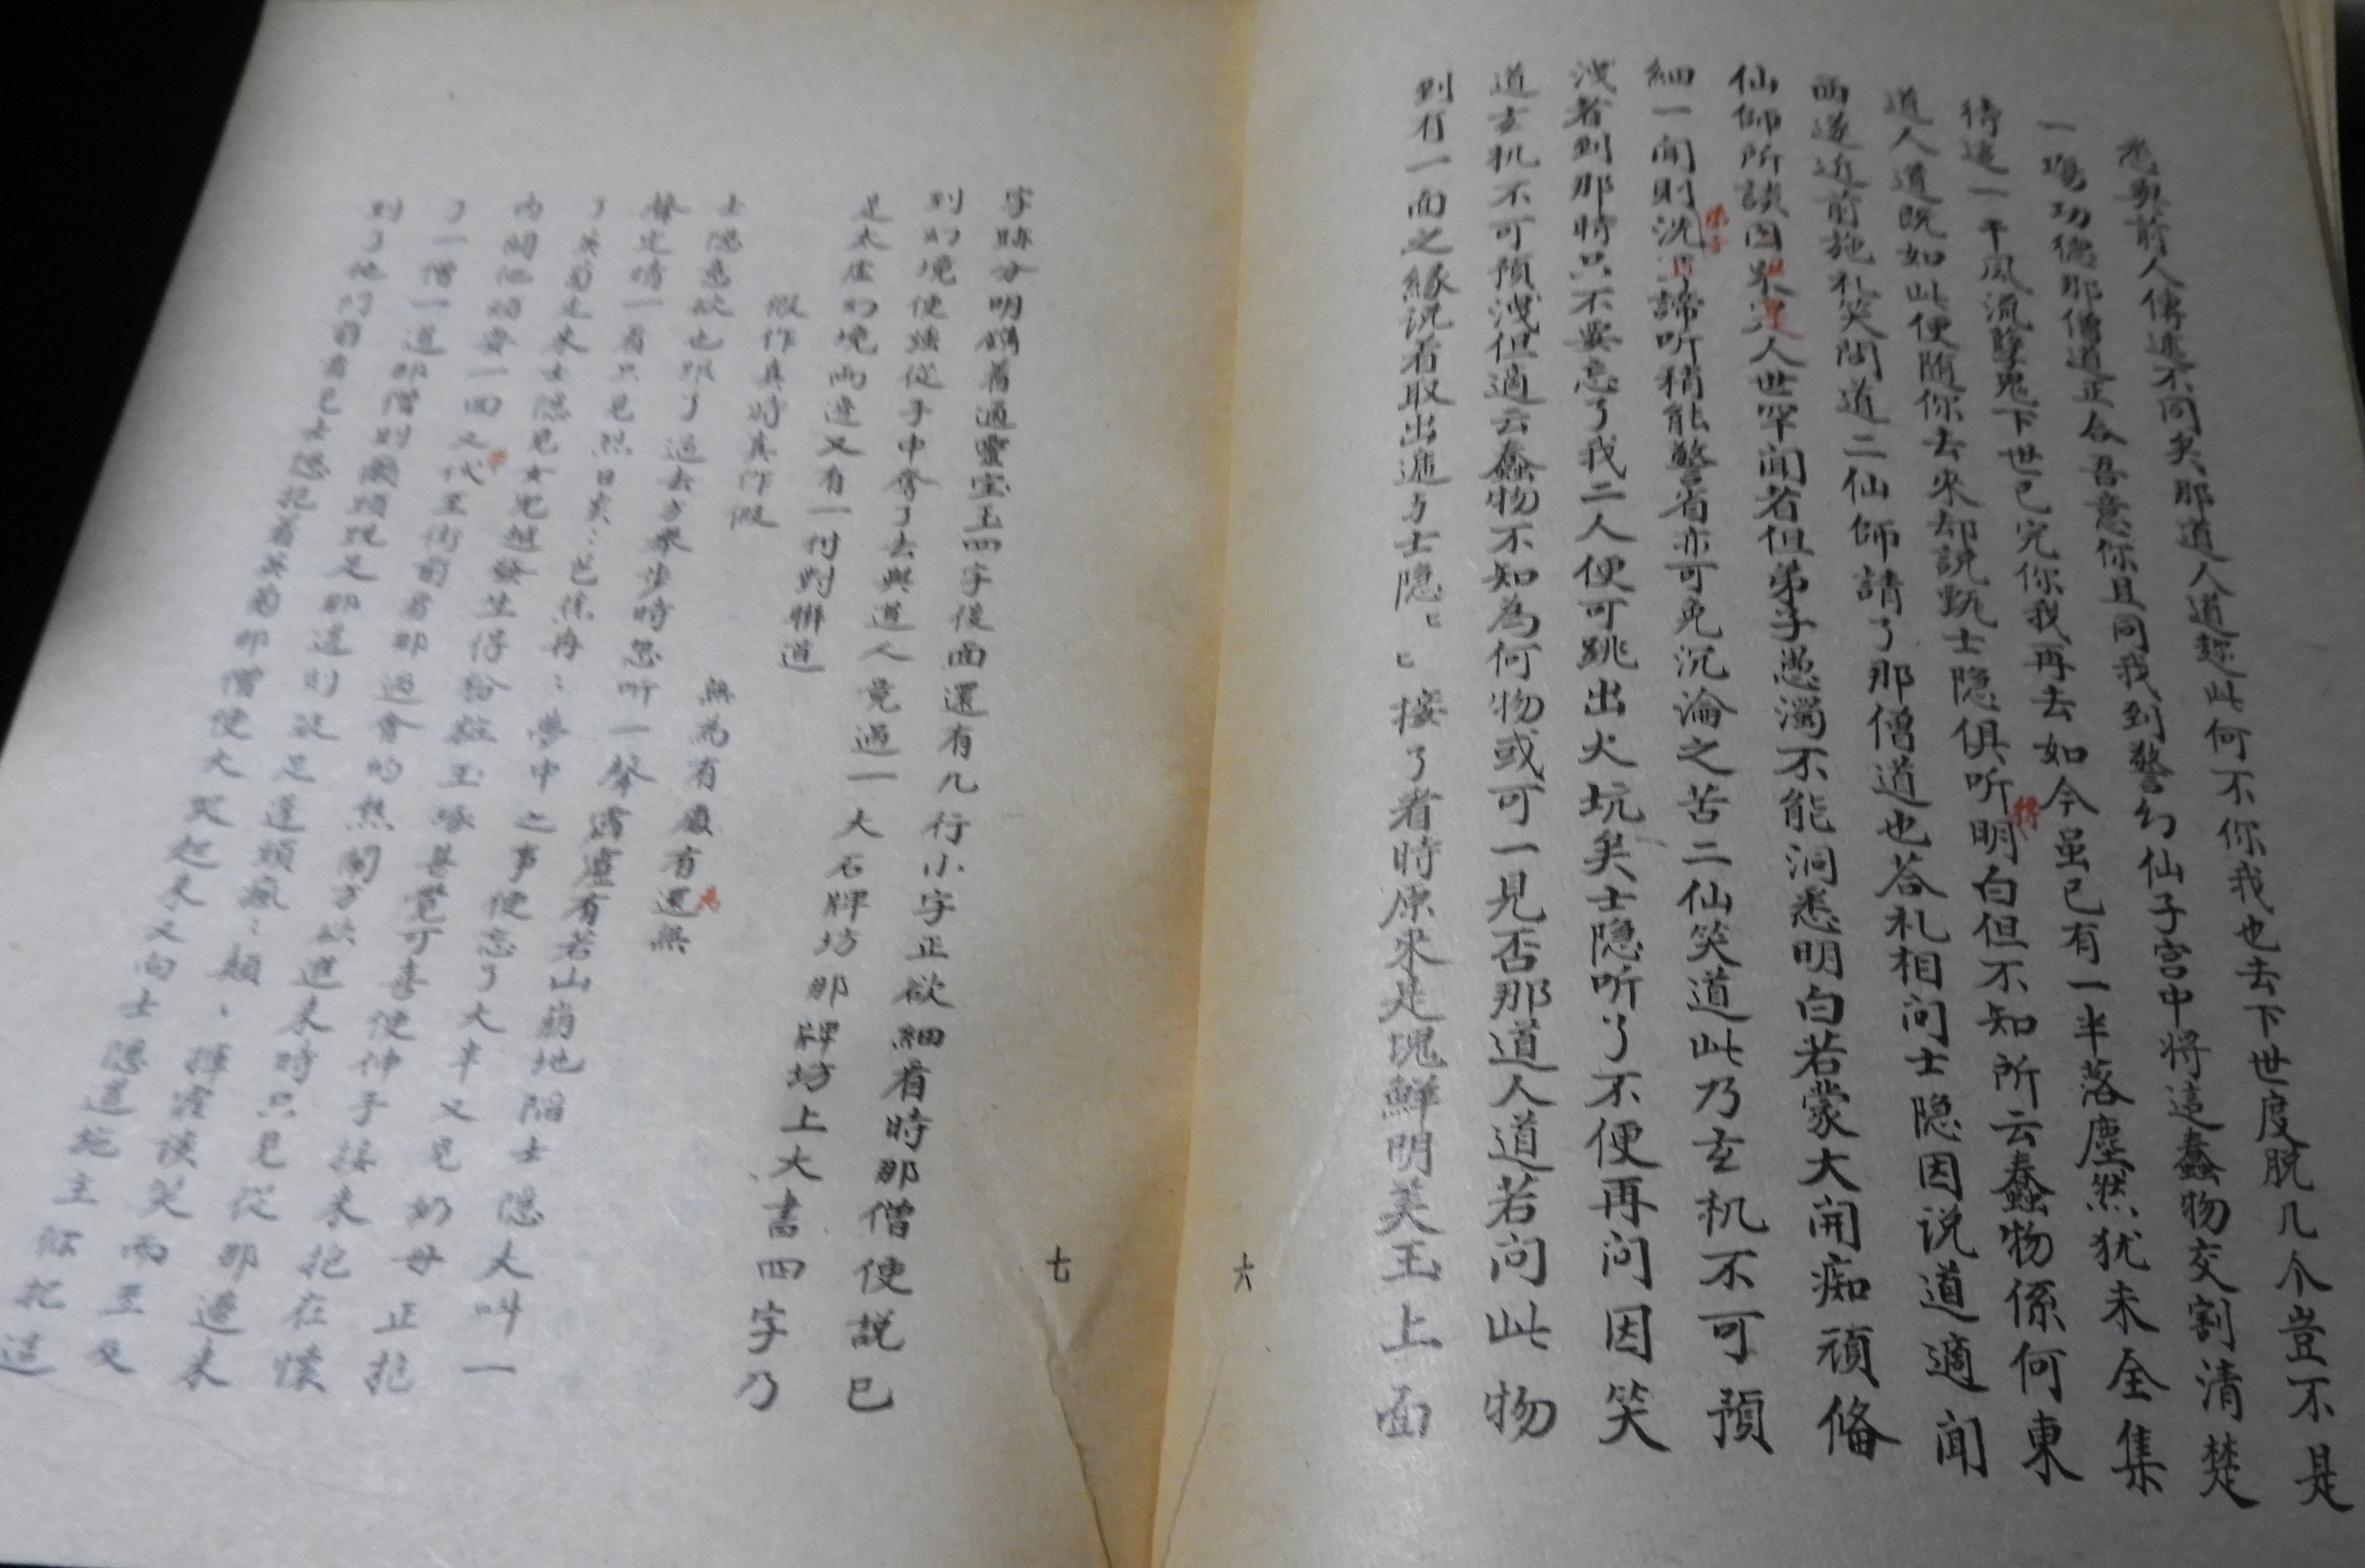 悉與前人傳述不同矣那道人道趂此何不你我也去下世度脫几个豈不是
一塲功德那僧道正合吾意你且同我到警幻仙子宮中將這蠢物交割清楚
待這一干風流孽鬼下世已完你我再去如今虽已有一半落塵然犹未全集
道人道既如此便随你去来却説甄士隐俱听得明白但不知所云蠢物係何東
西遂近前施礼笑問道二仙師請了那僧道也荅礼相问士隐因说道適闻
仙師所談因果是人世罕闻者但弟子愚濁不能洞悉明白若蒙大開痴頑俻
細一闻則洗耳諦听稍能警省亦可免沉淪之苦二仙笑道此乃玄机不可預
洩者到那時只不要忘了我二人便可跳出火坑矣士隐听了不便再问因笑
道玄机不可預洩但適云蠢物不知為何物或可一見否那道人道若问此物
到有一面之緣说着取出遞与士隐ㄴㄴ接了看時原来是塊鮮明美玉上面
六
字跡分明鐫着通靈宝玉四字後面還有几行小字正欲細看時那僧便説已
到幻境便强從手中奪了去與道人竟過一大石牌坊那牌坊上大書四字乃
是太虚幻境兩邊又有一付對聯道
假作真時真作假
無為有處有還無
為
士隐意欲也跟了過去方举步時忽听一聲霹靂有若山崩地陷士隐大叫一
聲定睛一看只见烈日炎：芭蕉冉：夢中之事便忘了大半又見奶母正抱
了英菊走来士隐見女兒越發生得粉粧玉琢甚覺可喜便伸手接来抱在懷
内鬥他頑耍一回又代至街前看那過會的热闹方欲進来時只見從那邊来
了一僧一道那僧則癩頭跣足那道則跛足蓬頭瘋：顛：揮霍谈笑而至及
到了他门前看見士隐抱着英菊那僧便大哭起来又向士隐道施主你把這
七